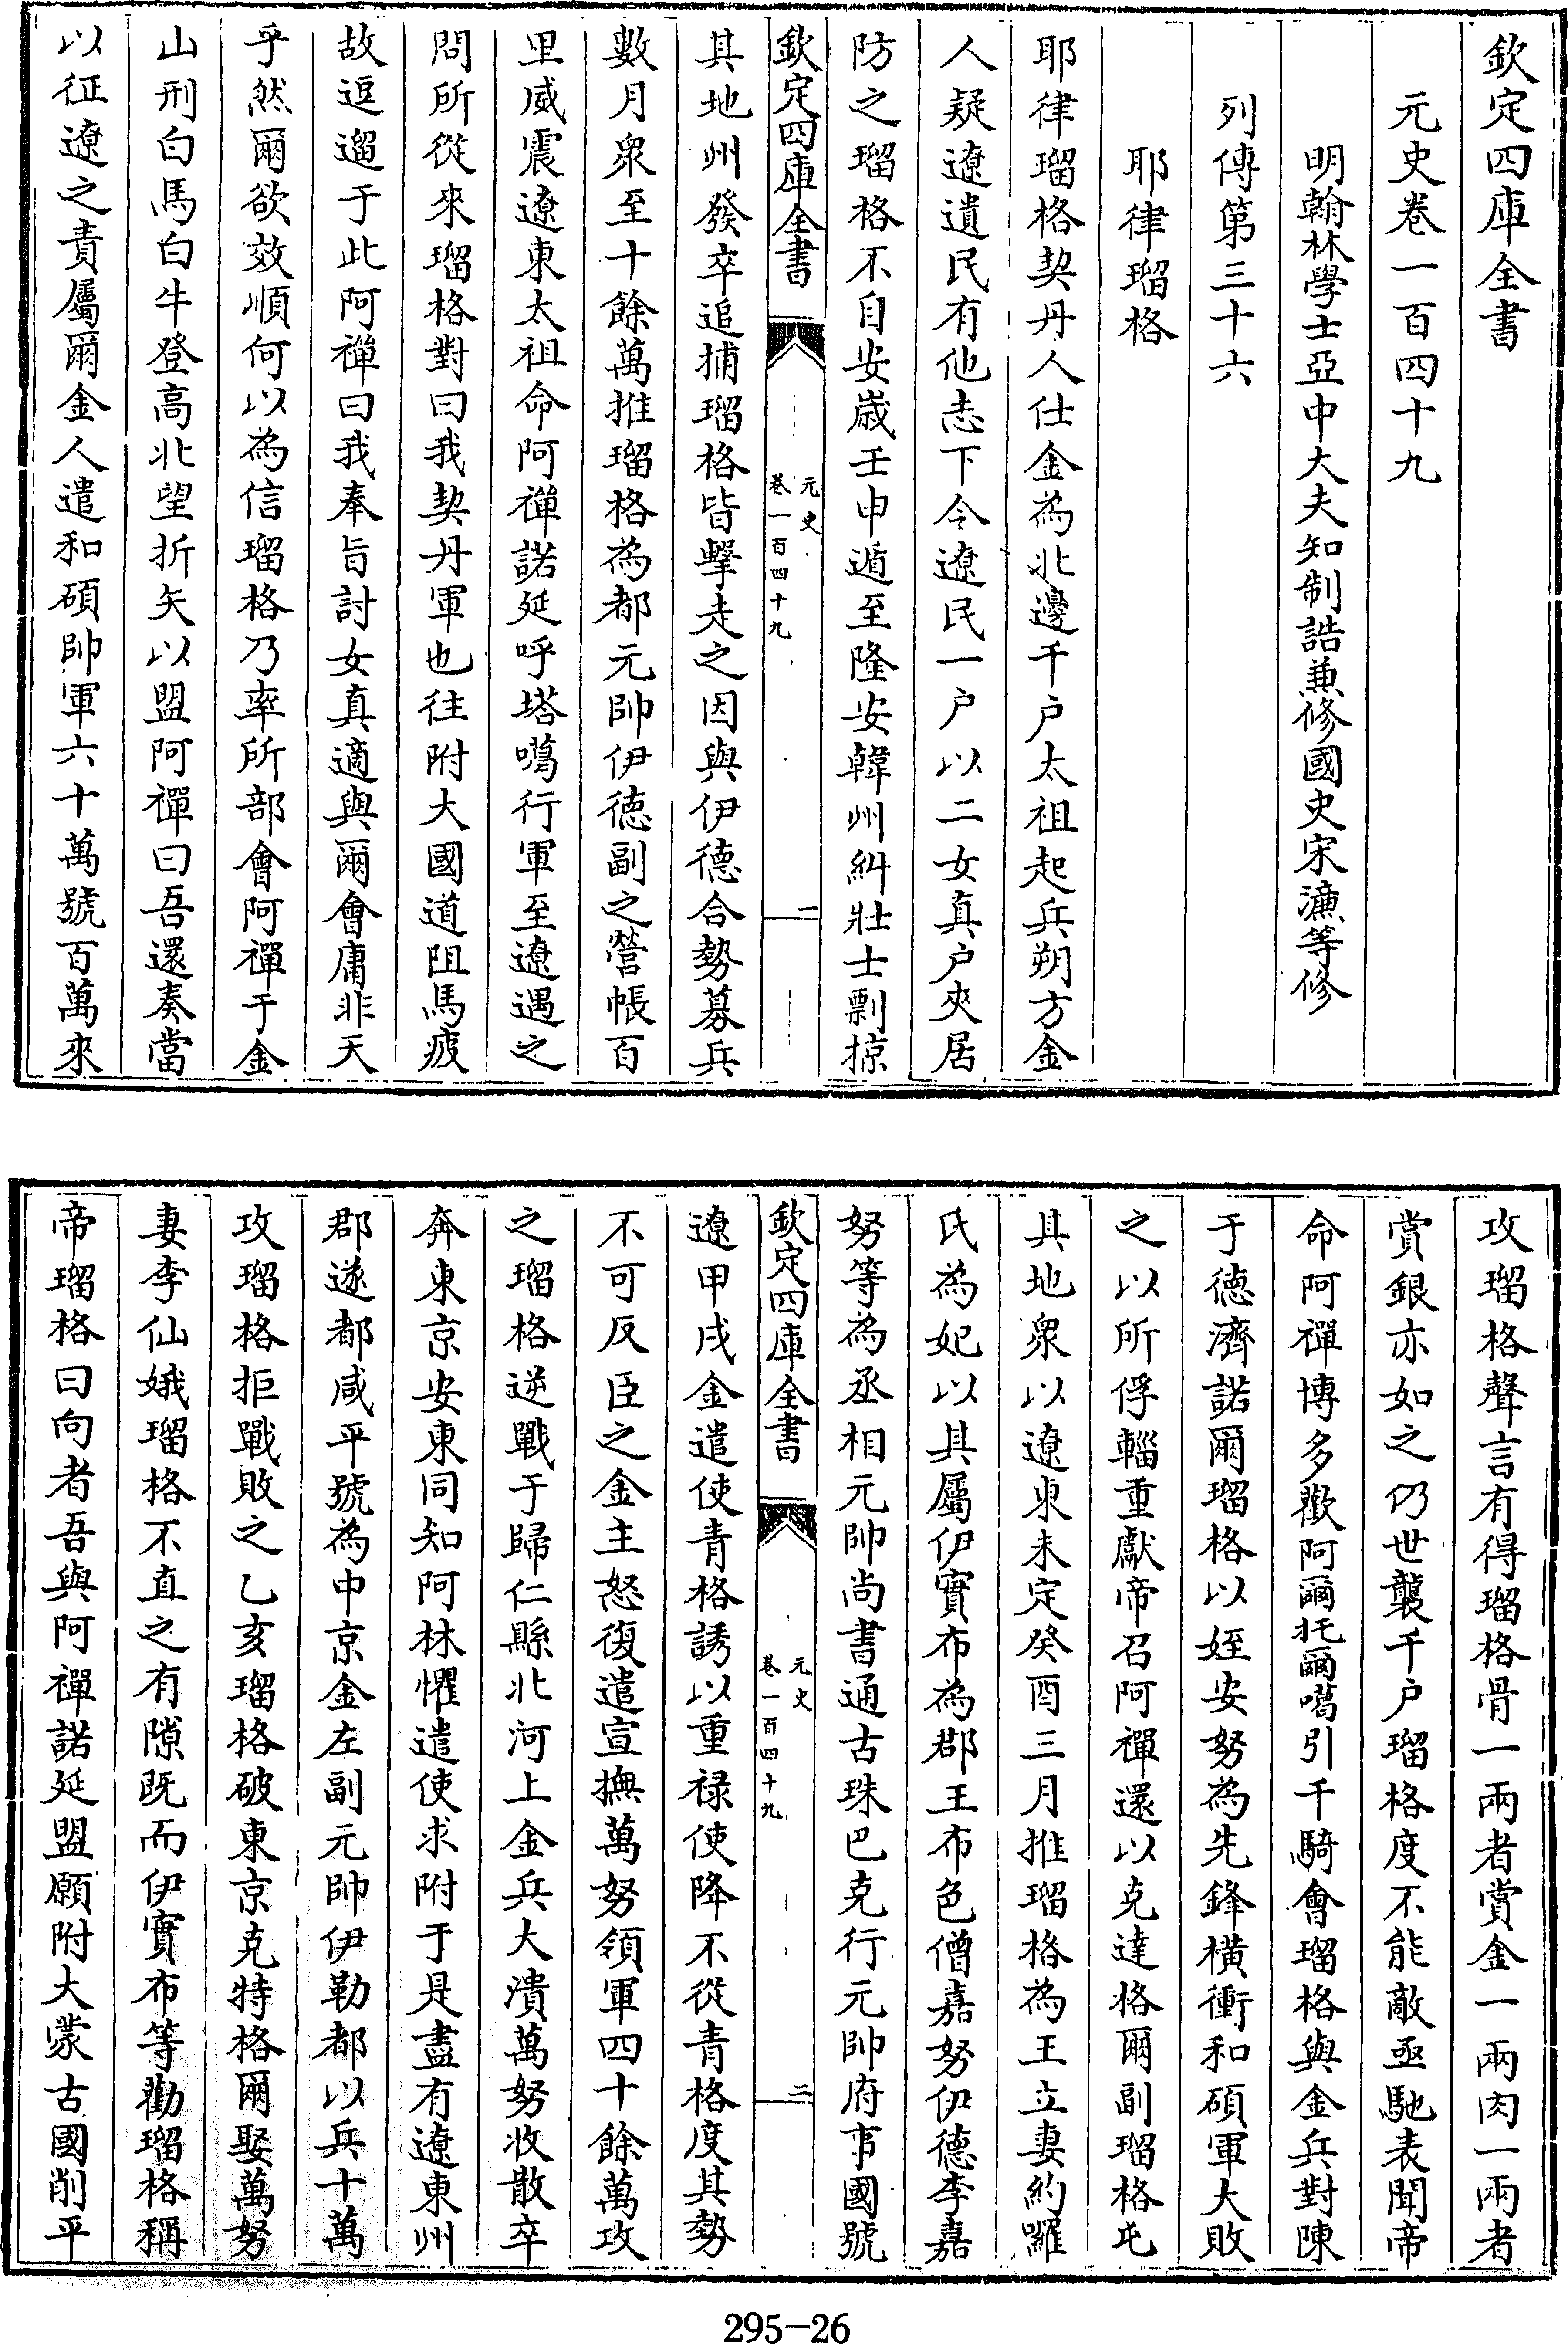 欽定四庫全書
元史卷一百四十九
明翰林學士亞中大夫知制誥兼修國史宋濂等修
列傳第三十六
耶律瑠格
耶律瑠格契丹人仕金為北邊千户太祖起兵朔方金
人疑遼遺民有他志下令遼民一户以二女真户夾居
防之瑠格不自安歲壬申遁至隆安韓州糾壯士剽掠
欽定四庫全書
元史
卷一百四十九
一
其地州發卒追捕瑠格皆擊走之因與伊德合勢募兵
數月衆至十餘萬推瑠格為都元帥伊德副之營帳百
里威震遼東太祖命阿禪諾延呼塔噶行軍至遼遇之
問所從來瑠格對曰我契丹軍也往附大國道阻馬疲
故逗遛于此阿禪曰我奉旨討女真適與爾會庸非天
乎然爾欲效順何以為信瑠格乃率所部會阿禪于金
山刑白馬白牛登高北望折矢以盟阿禪曰吾還奏當
以征遼之責屬爾金人遣和碩帥軍六十萬號百萬來
攻瑠格聲言有得瑠格骨一兩者賞金一兩肉一兩者
賞銀亦如之仍世襲千户瑠格度不能敵亟馳表聞帝
命阿禪博多歡阿爾托爾噶引千騎會瑠格與金兵對陳
于德濟諾爾瑠格以姪安努為先鋒橫衝和碩軍大敗
之以所俘輜重獻帝召阿禪還以克達格爾副瑠格屯
其地衆以遼東未定癸酉三月推瑠格為王立妻約囉
氏為妃以其屬伊實布為郡王布色僧嘉努伊德李嘉
努等為丞相元帥尚書通古珠巴克行元帥府事國號
欽定四庫全書
元史
卷一百四十九
二
遼甲戌金遣使青格誘以重祿使降不從青格度其勢
不可反臣之金主怒復遣宣撫萬努領軍四十餘萬攻
之瑠格逆戰于歸仁縣北河上金兵大潰萬努收散卒
奔東京安東同知阿林懼遣使求附于是盡有遼東州
郡遂都咸平號為中京金左副元帥伊勒都以兵十萬
攻瑠格拒戰敗之乙亥瑠格破東京克特格爾娶萬努
妻李仙娥瑠格不直之有隙既而伊實布等勸瑠格稱
帝瑠格曰向者吾與阿禪諾延盟願附大蒙古國削平
295-26